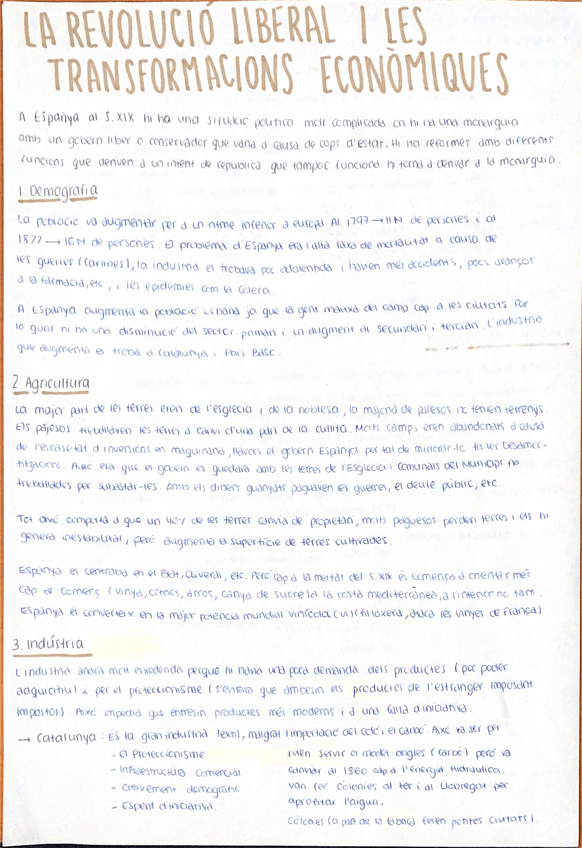 LA REVOLUCIÓ LIBERAL I LES
TRANSFORMACIONS ECONÒMIQUES
A Espanya al S.XIX hi ha una situació política molt complicada on hi ha una monarquia
amb un govern lliber o conservador que varia a causa de cops d'estat. Hi ha reformes amb diferents
funcions que deriven a un intent de republica que tampoc funciona hi torna a derivar a la monarquia.
1. Demografia
La població va augmentar per a un ritme inferior a europa. Al 1797 → 11M de persones i al
1877 → 16M de persones. El problema d'Espanya era l'alta taxa de mortalitat a causa de
les guerres (carlines), la industria es trobava poc adelantada i havien més accidents, pocs avanços
a la farmacia, etc, i les epidemies com la Colera
A Espanya augmenta la població urbana ja que la gent marxa del camp cap a les ciutats. Per
lo qual hi ha una disminució del sector primari i un augment al secundari i terciari. L'industria
que augmenta es troba a Catalunya i País Basc.
2. Agricultura
La major part de les terres eren de l'esglècia i de la noblesa, la majoria de pallesos no tenien terrenys.
Els pajesos treballaven les terres a canvi d'una part de la cullita. Molts camps eren abandonats a causa
de l'escasetat d'inversions en maquinaria, llavors el gobern Espanyol per tal de millorar-lo fa les Desamor-
titzacions. Això era que el gobern es quedara amb les terres de l'Esglècia i comunals del Municipi no
treballades per subastar-les. Amb els diners guanyats pagaven les guerres, el deute públic, etc.
Tot això comporta a que un 40% de les terres canvia de propietari, molts paguesos perden terres i els hi
genera inestabilitat, però augmenta la superfície de terres cultivades.
Espanya es centraba en el Blat, Oliverdi, etc. Però cap a la meitat del S.XIX es comença a orientar més
cap al comerç (vinya, cítrics, arros, canya de sucre) a la costa mediterrànea, a l'interior no tant.
Espanya es converteix en la major potencia mundial vinícola (virus filoxera, ataca les vinyes de França)
3. Indústria
L'industria anara molt enrederida perquè hi havia una poca demanda dels productes (poc poder
adquicitiu) i per el proteccionisme (s'evitava que entresin els productes de l'estranger imposant
impostos). Això impedia que entresin productes més moderns i a una falta d'iniciativa.
→ Catalunya: Es la gran industria textil, malgrat l'importació del cotó i el carbó. Això va ser per
- El Proteccionisme
- Infraestructura comercial
- Creixement demografic
- Esperit d'iniciativa.
Iven servir el model angles (carbó) però va
canviar al 1860 cap a l'energia hidraulica.
van fer colonies al ter i al Llobregat per
aprofitar l'aigua.
Colonies (a part de la fabrica feien petites ciutats).